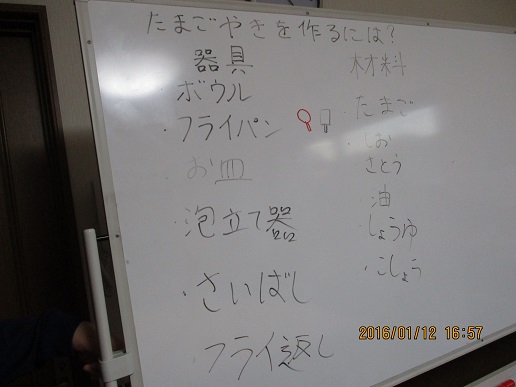 たまごやきを作るには?
器具
・ボウル
・フライパン
・お皿
・泡立て器
・さいばし
・フライ返し
材料
・たまご
・しお
さとう
油
・しょうゆ
・こしょう
2016/01/12 16:57